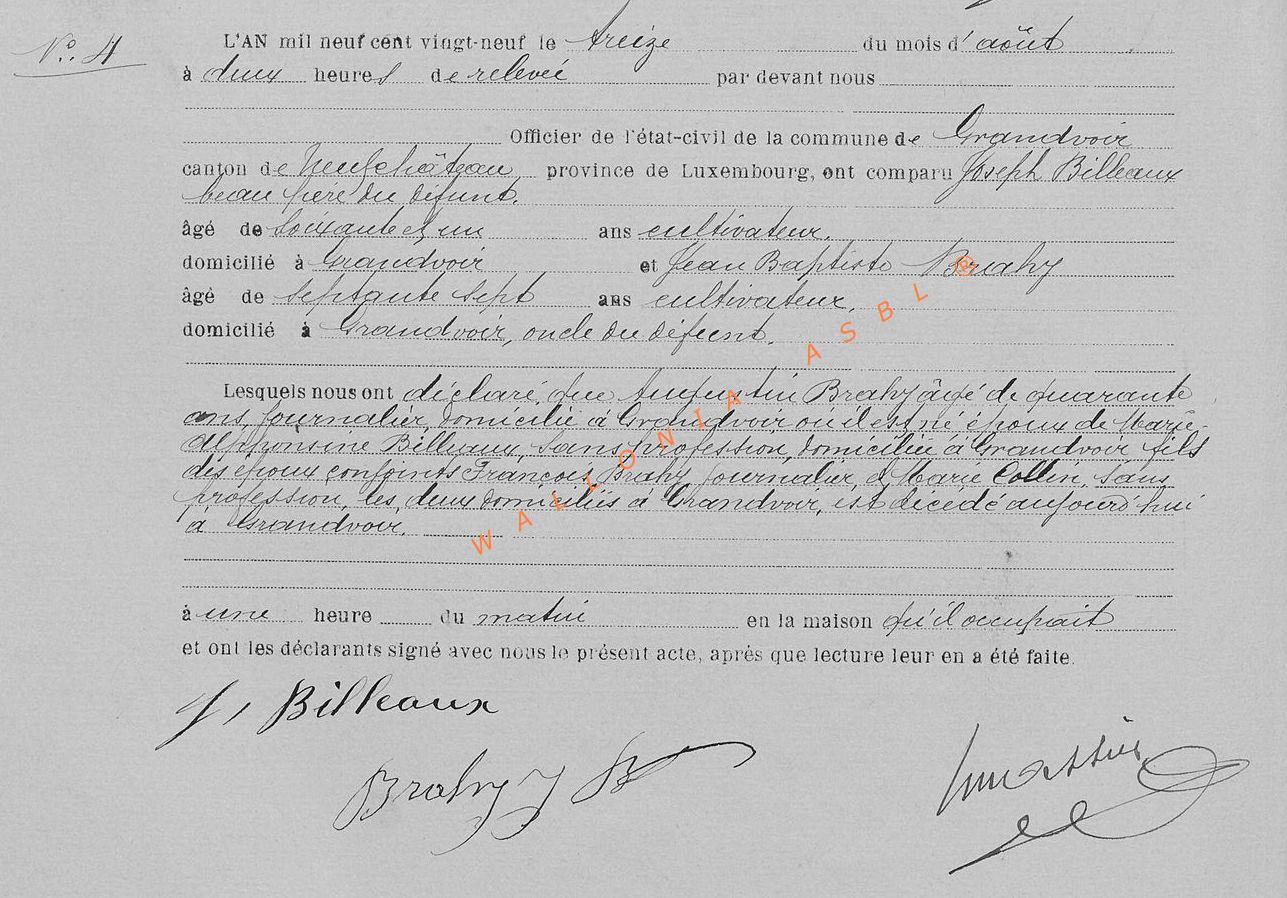 No. 4
L'AN mil neuf cent vingt-neuf le treize du mois d'août
à deux heures de relevée par devant nous
Officier de l'état-civil de la commune de Grandvoir
canton de Neufchâteau province de Luxembourg, ont comparu Joseph Billeaux
beau père du défunt.
âgé de soixante et un ans cultivateur.
domicilié à Grandvoir et Jean Baptiste Brahy
âgé de septante sept ans cultivateur,
domicilié à Grandvoir, oncle du défunt.
Lesquels nous ont déclaré que Augustin Brahy âgé de quarante
ans, journalier, domicilié à Grandvoir où il est né époux de Marie-
Alphonsine Billeaux, sans profession, domiciliée à Grandvoir fils
des époux conjoints François Brahy journalier, & Marie Collin, sans
profession, les deux domiciliés à Grandvoir, est décédé aujourd'hui
à Grandvoir.
à une heure du matin en la maison qu'il occupait
et ont les déclarants signé avec nous le présent acte, après que lecture leur en a été faite.
J, Billeaux
Brahy J B
WALLONIA ASBL ®